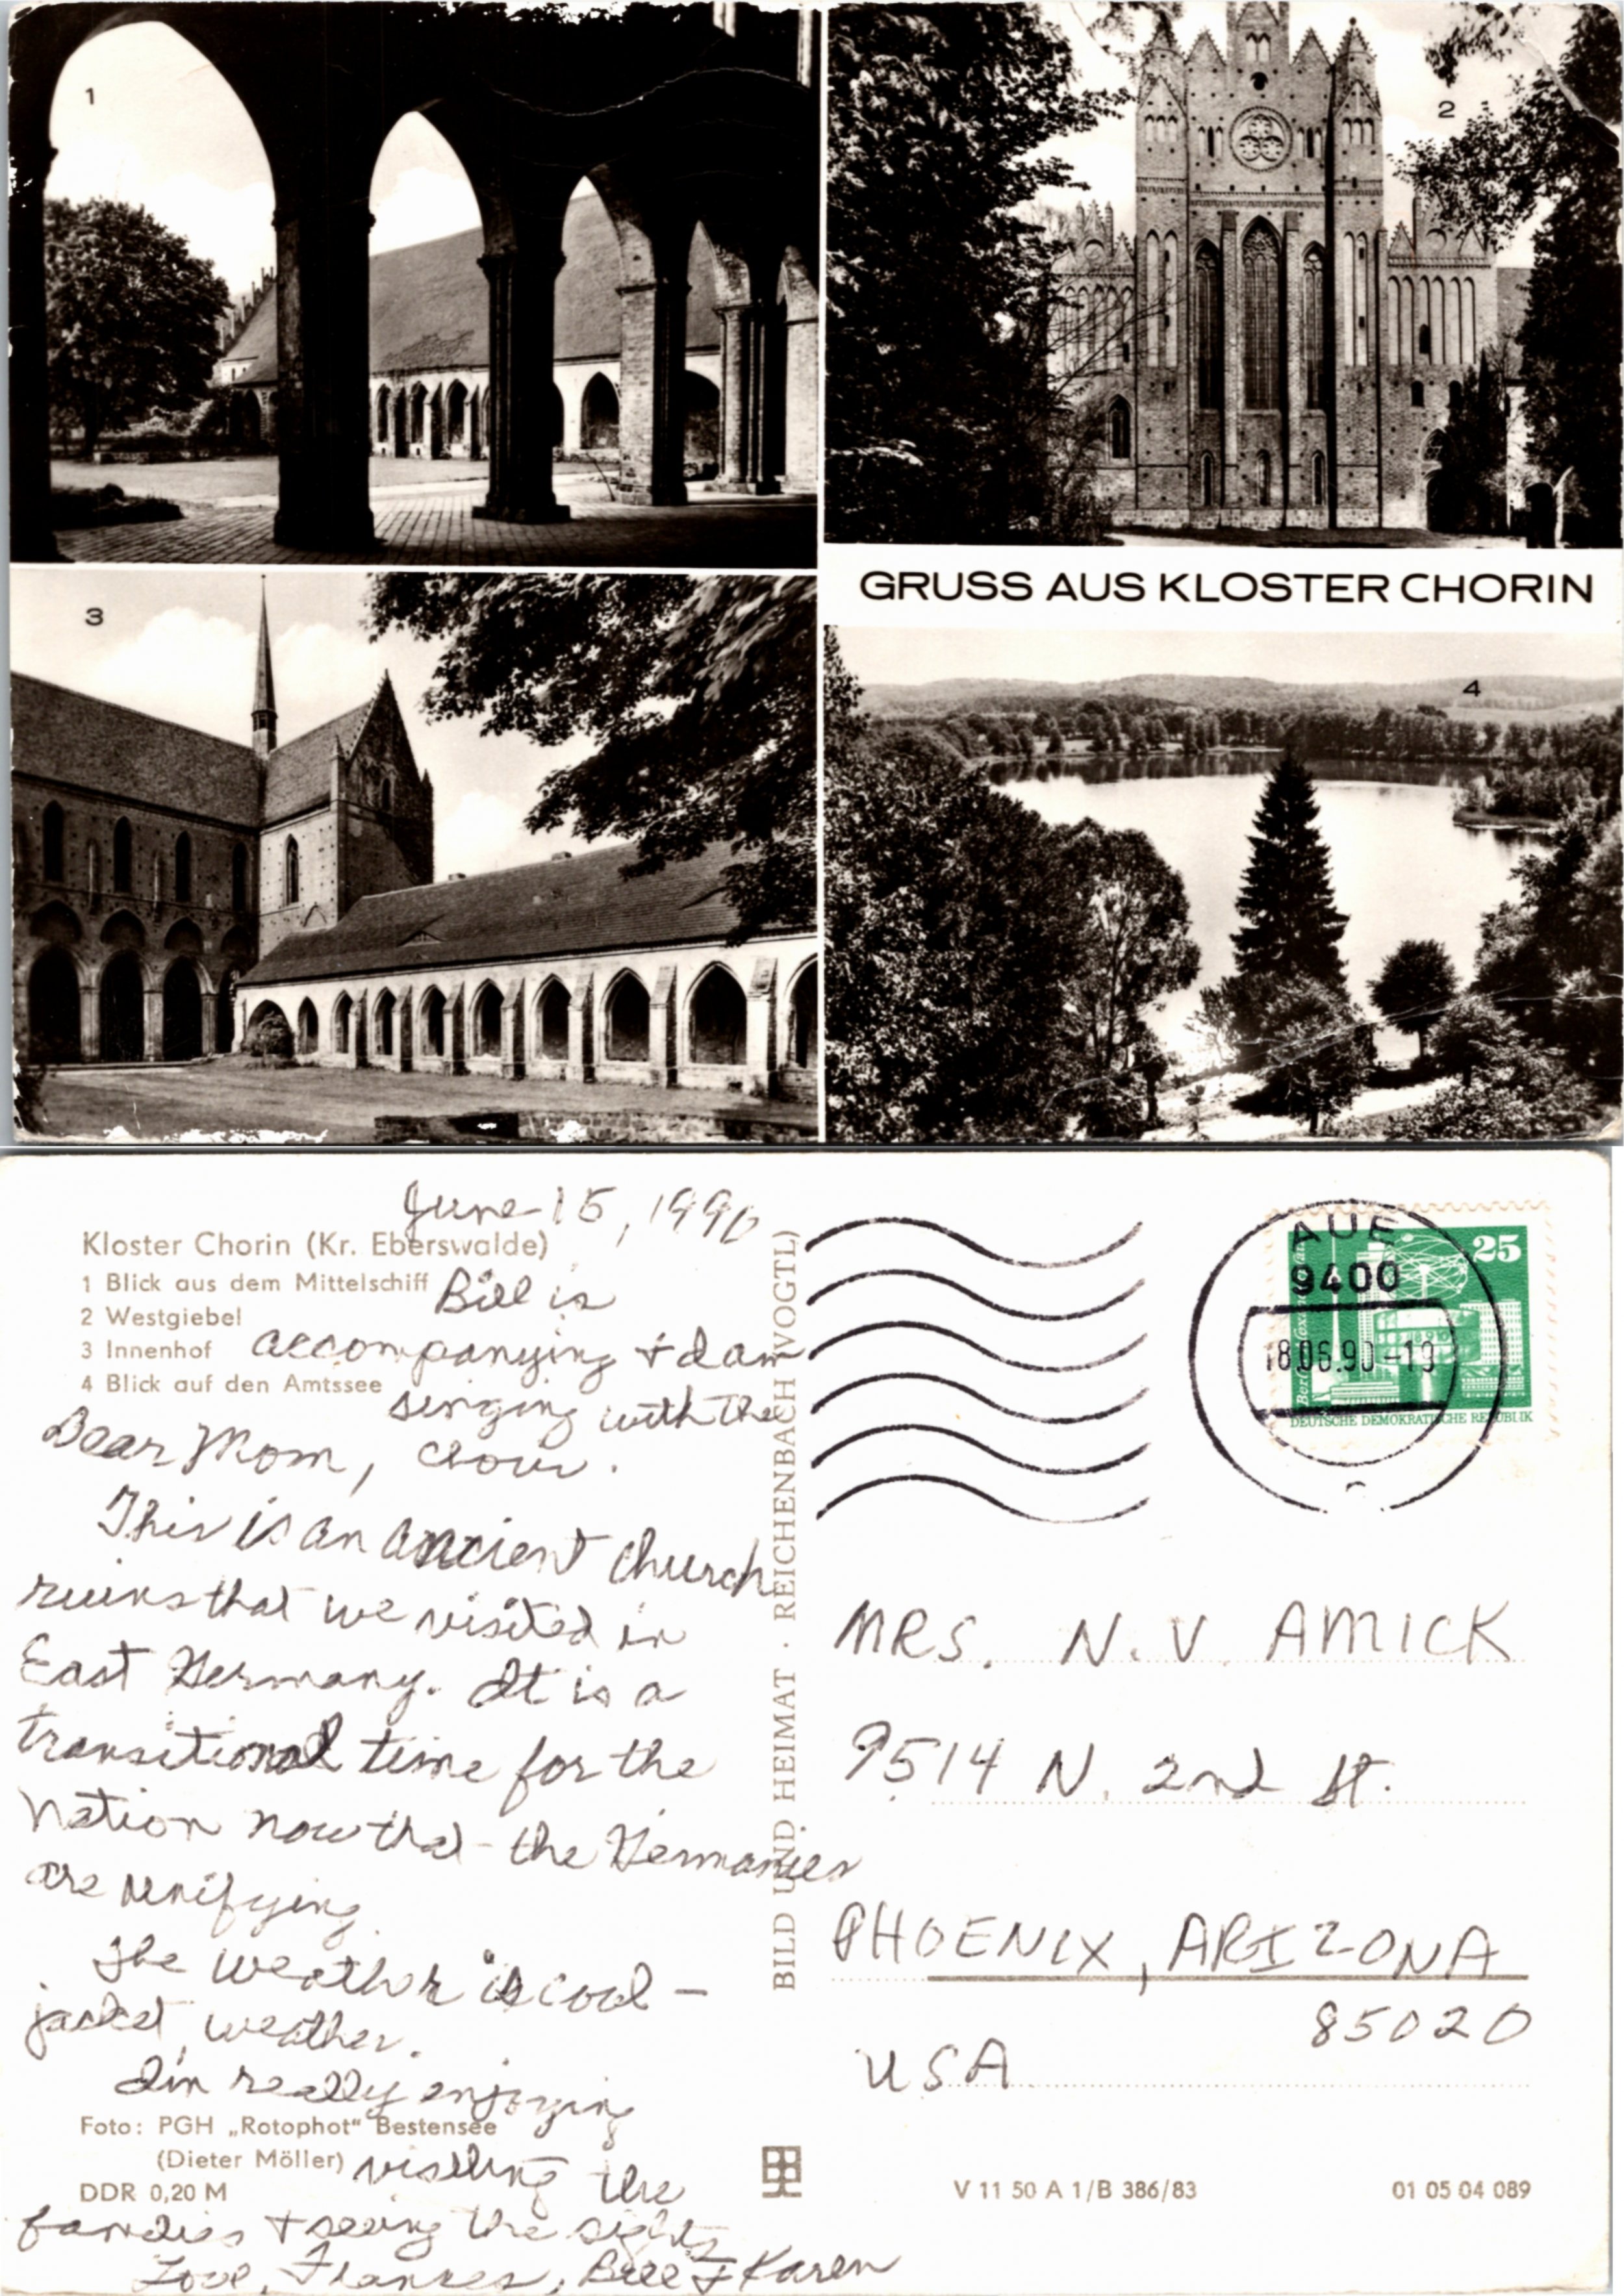 1
2
GRUSS AUS KLOSTER CHORIN
3
4
June 15, 1990
Kloster Chorin (Kr. Eberswalde)
1 Blick aus dem Mittelschiff
2 Westgiebel
3 Innenhof
4 Blick auf den Amtssee
Bill is
accompanying + I am
singing with the
choir.
Dear Mom,
This is an ancient church
ruins that we visited in
East Germany. It is a
transitional time for the
Nation now that the Germanies
are unifying.
The weather is cool -
jacket weather.
I'm really enjoying
visiting the
families + seeing the sights
Love, Frances, Bill & Karen
Foto: PGH „Rotophot“ Bestensee
(Dieter Möller)
DDR 0,20 M
BILD UND HEIMAT · REICHENBACH (VOGTL)
AUE
9400
18.06.90-19
25
DEUTSCHE DEMOKRATISCHE REPUBLIK
MRS. N. V. AMICK
9514 N. 2nd St.
PHOENIX, ARIZONA
85020
USA
V 11 50 A 1/B 386/83
01 05 04 089